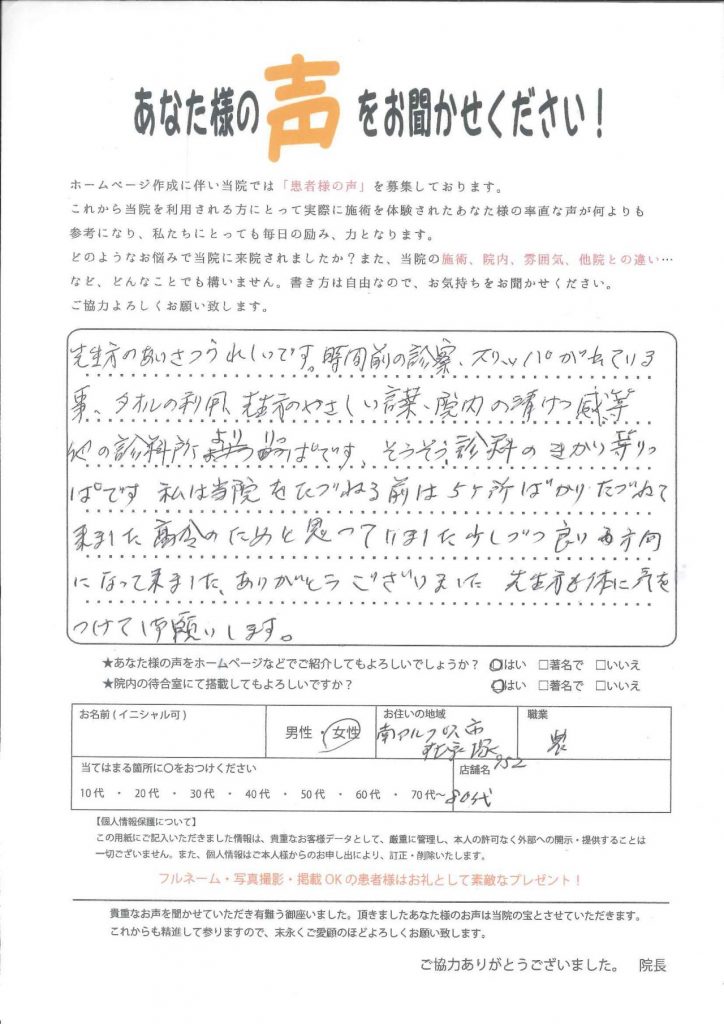 あなた様の声をお聞かせください！
ホームページ作成に伴い当院では「患者様の声」を募集しております。
これから当院を利用される方にとって実際に施術を体験されたあなた様の率直な声が何よりも
参考になり、私たちにとっても毎日の励み、力となります。
どのようなお悩みで当院に来院されましたか？また、当院の施術、院内、雰囲気、他院との違い…
など、どんなことでも構いません。書き方は自由なので、お気持ちをお聞かせください。
ご協力よろしくお願い致します。
先生方のあいさつうれしいです。時間前の診察、スリッパが出ている
事、タオルの利用、先生方のやさしい言葉、院内の清けつ感等
他の診料所よりりっぱです、そうそう診料のきかい等りっ
ぱです 私は当院をたづねる前は5ケ所ばかりたづねて
来ました 高令のためと思っていました 少しづつ良い方向
になって来ました、ありがとうございました 先生方お体に気を
つけてお願いします。
★あなた様の声をホームページなどでご紹介してもよろしいでしょうか？ □はい □著名で □いいえ
★院内の待合室にて搭載してもよろしいですか？ □はい □著名で □いいえ
お名前(イニシャル可)
男性・女性
お住いの地域
南アルプス市
952
職業
農
当てはまる箇所に〇をおつけください
10代 ・ 20代 ・ 30代 ・ 40代 ・ 50代 ・ 60代 ・ 70代〜 80代
店舗名
【個人情報保護について】
この用紙にご記入いただきました情報は、貴重なお客様データとして、厳重に管理し、本人の許可なく外部への開示・提供することは
一切ございません。また、個人情報はご本人様からのお申し出により、訂正・削除いたします。
フルネーム・写真撮影・掲載OKの患者様はお礼として素敵なプレゼント！
貴重なお声を聞かせていただき有難う御座いました。頂きましたあなた様のお声は当院の宝とさせていただきます。
これからも精進して参りますので、末永くご愛顧のほどよろしくお願い致します。
ご協力ありがとうございました。 院長